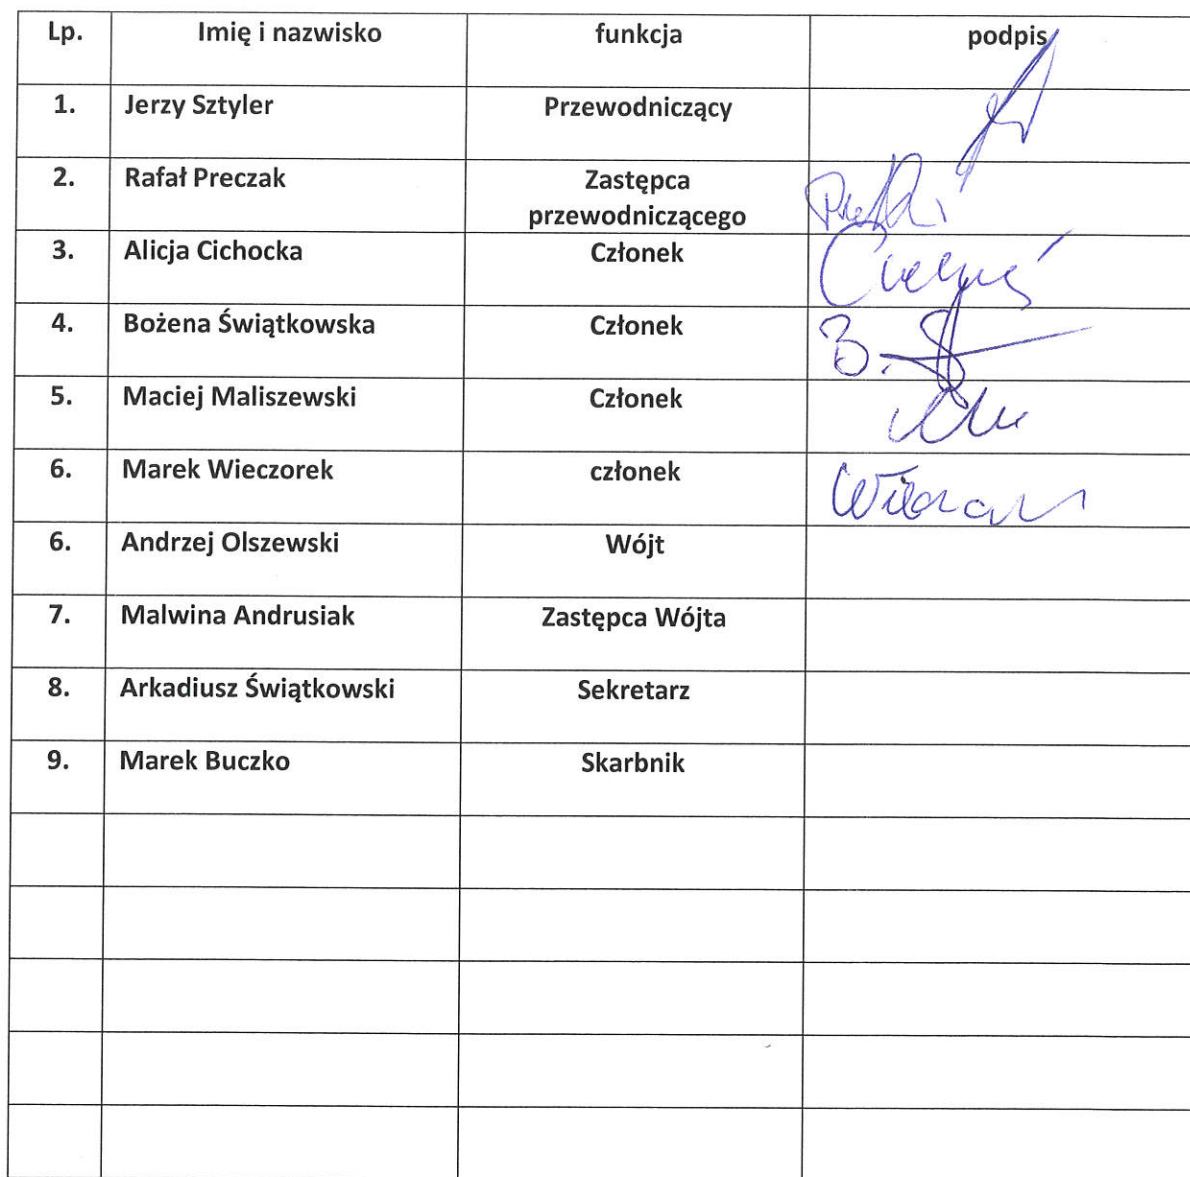 Lp. Imię i nazwisko funkcja podpis
1. Jerzy Sztyler Przewodniczący
2. Rafał Preczak Zastępca
przewodniczącego
3. Alicja Cichocka Członek
4. Bożena Świątkowska Członek B.
5. Maciej Maliszewski Członek
6. Marek Wieczorek członek
6. Andrzej Olszewski Wójt
7. Malwina Andrusiak Zastępca Wójta
8. Arkadiusz Świątkowski Sekretarz
9. Marek Buczko Skarbnik